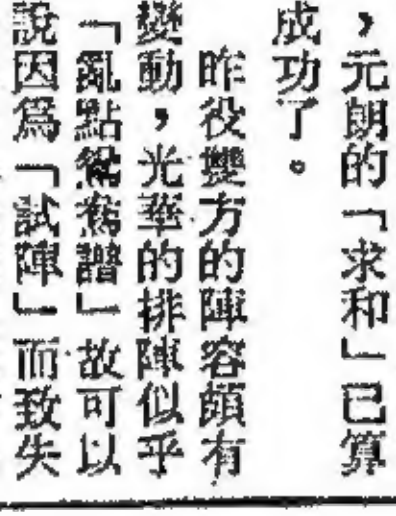 ，元朗的「求和」已算
成功了。
昨役雙方的陣容頗有
變動，光華的排陣似乎
「亂點鴛鴦譜」故可以
說因爲「試陣」而致失